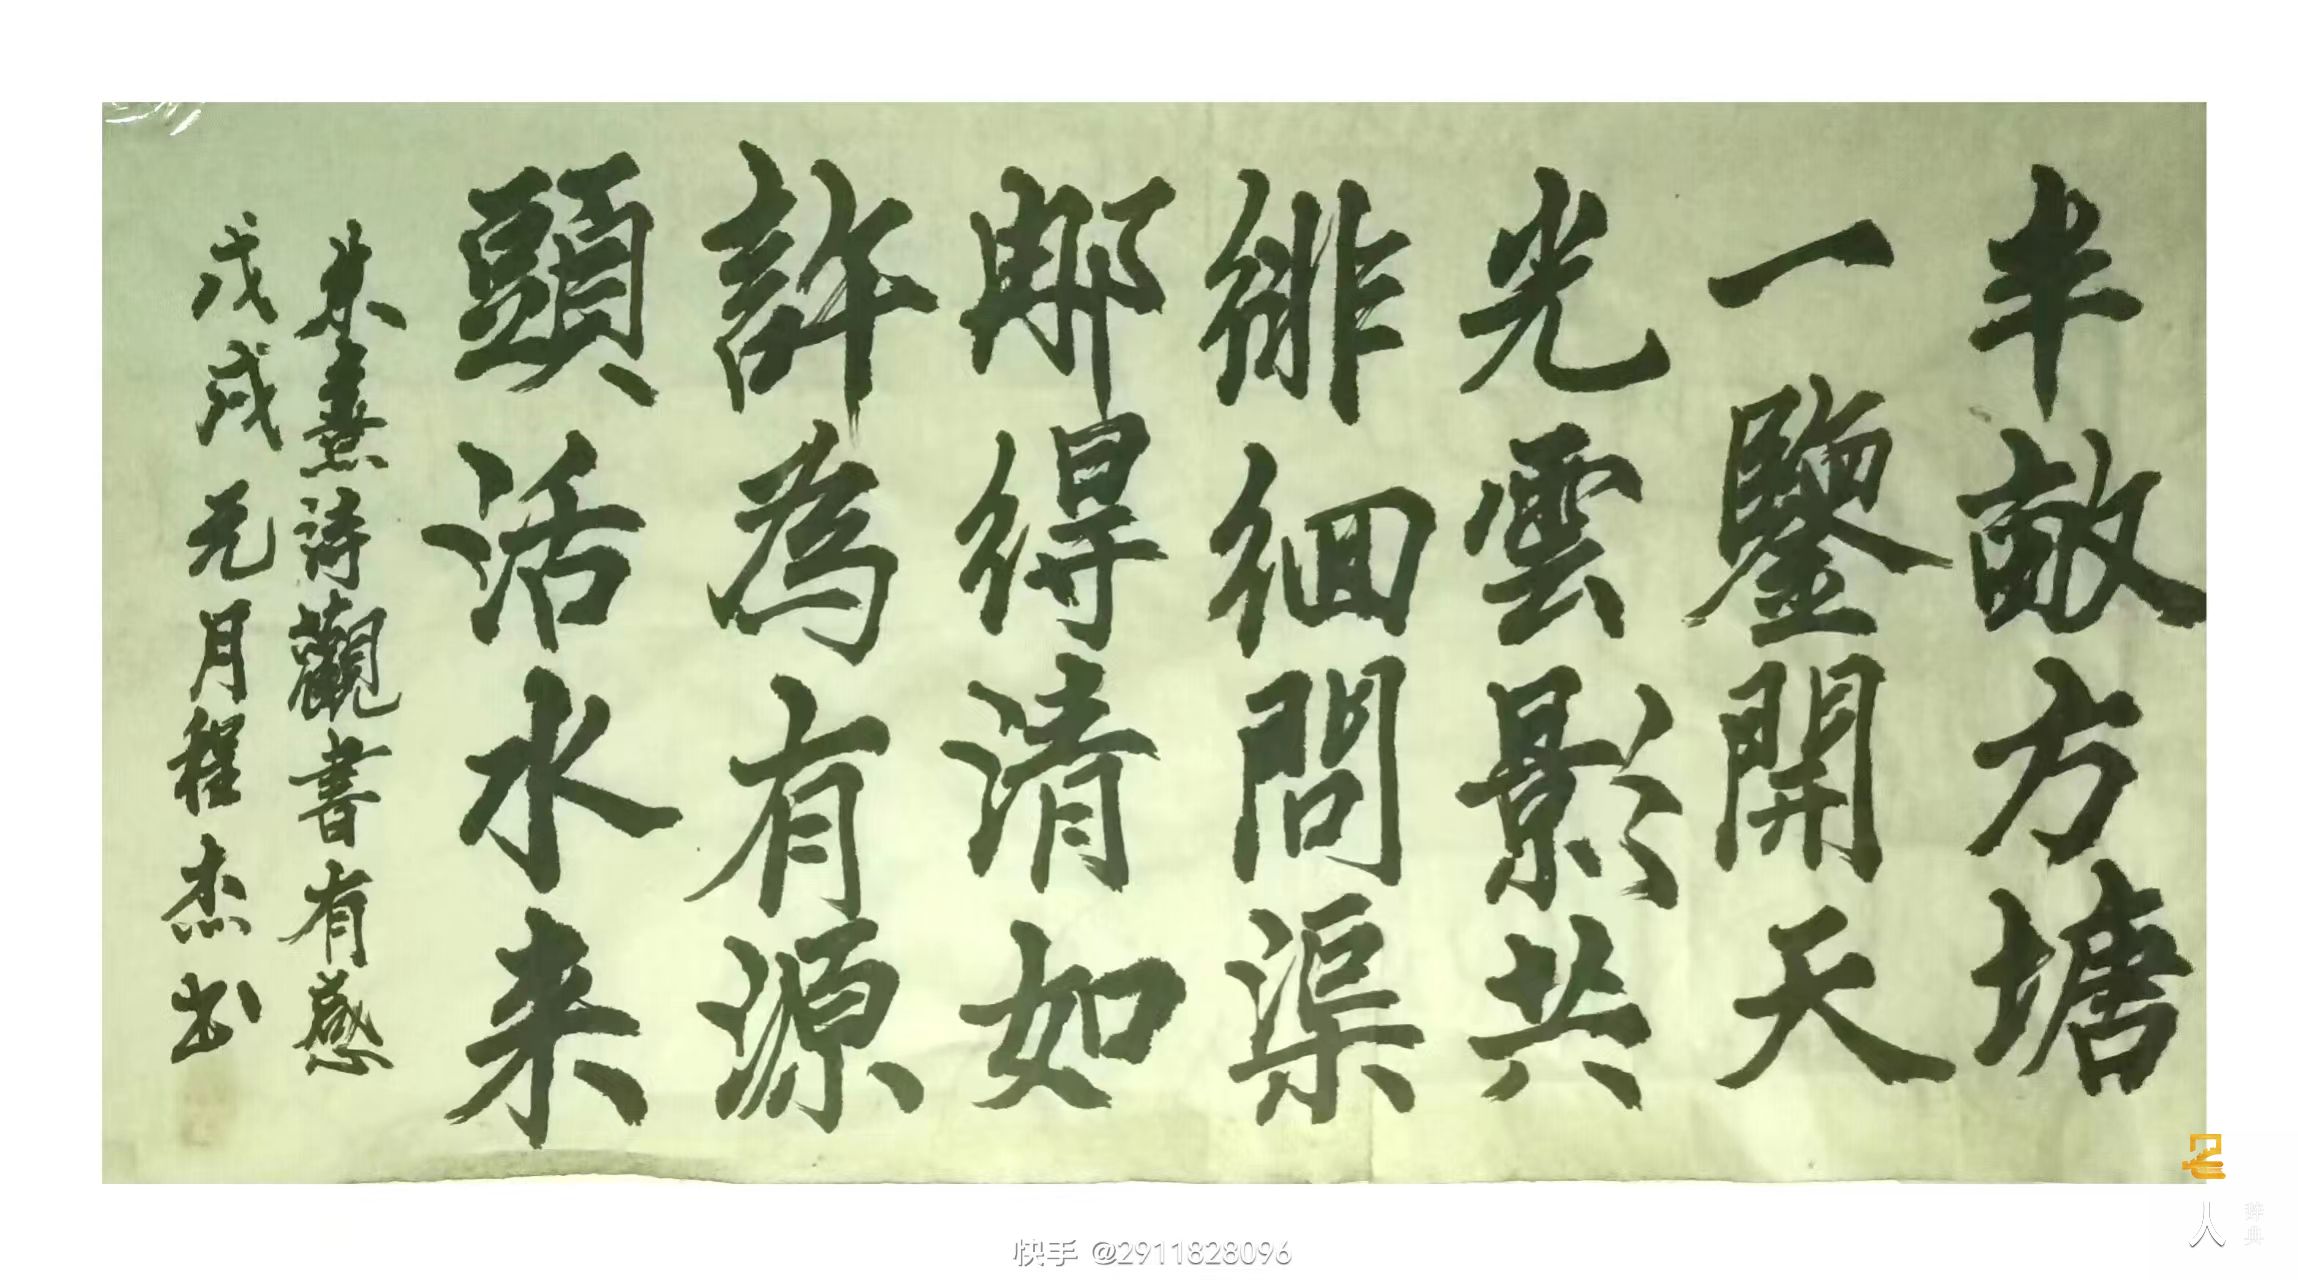 半畝方塘
一鑒開天
光雲影共
徘徊問渠
那得清如
許為有源
頭活水来
朱熹詩觀書有感
戊戌元月程杰书
快手 @2911828096
名
人
辞典